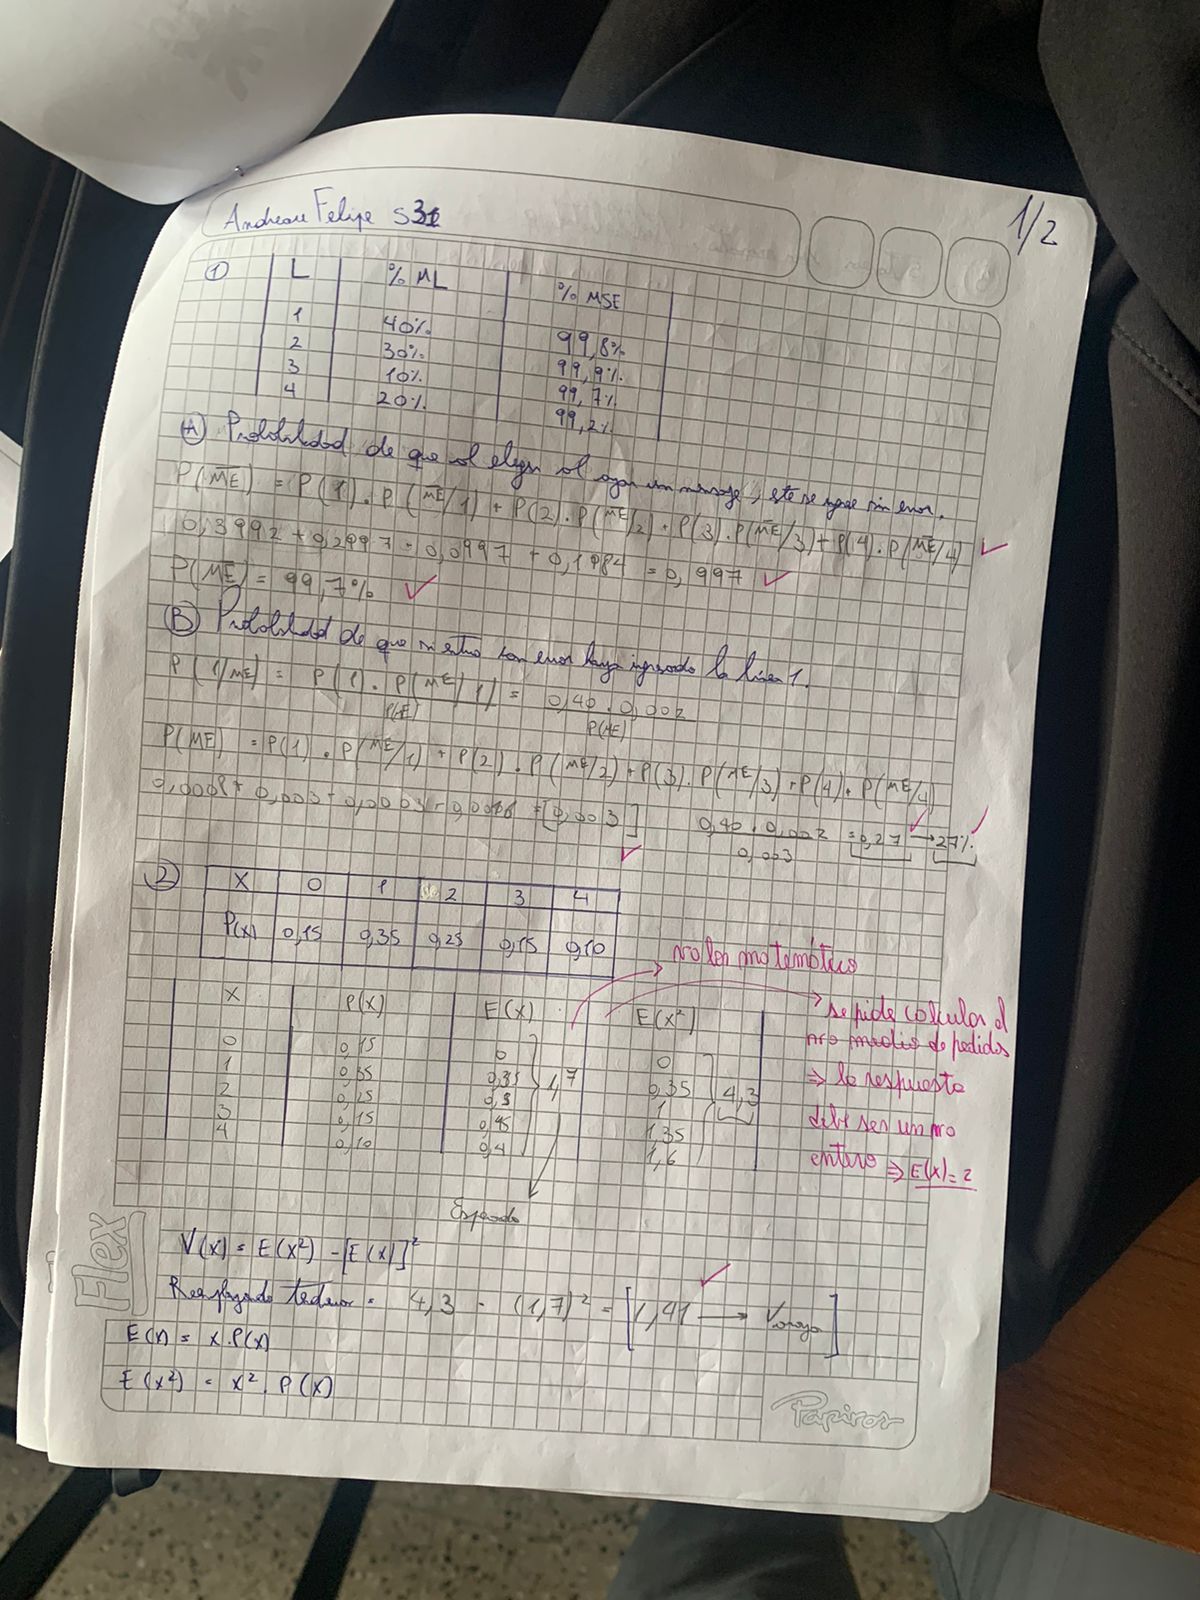 Andreau Felipe S31
1/2
① L % ML % MSE
1 40% 99,8%
2 30% 99,9%
3 10% 99,7%
4 20% 99,2%
Ⓐ Probabilidad de que al elegir al azar un mensaje, este se ingrese sin error.
P(M̅E̅) = P(1).P(M̅E̅/1) + P(2).P(M̅E̅/2) + P(3).P(M̅E̅/3) + P(4).P(M̅E̅/4)
0,3992 + 0,2997 + 0,0997 + 0,1984 = 0,997
P(M̅E̅) = 99,7%
Ⓑ Probabilidad de que error haya ingresado la línea 1.
P(1/ME) = P(1).P(ME/1) = 0,40 . 0,002
P(ME)
P(ME) = P(1).P(ME/1) + P(2).P(ME/2) + P(3).P(ME/3) + P(4).P(ME/4)
0,0008 + 0,003 + 0,0003 + 0,0016 = [0,003] 0,40 . 0,002 = 0,27 → 27%
0,003
② X 0 1 2 3 4
P(x) 0,15 0,35 0,25 0,15 0,10
no leo matemático
X P(x) E(x) E(x²)
0 0,15 0 0
1 0,35 0,35 0,35
2 0,25 0,5 1
3 0,15 0,45 1,35
4 0,10 0,4 1,6
1,7
4,3
se pide calcular el
nro medio de pedidos
⇒ la respuesta
debe ser un nro
entero ⇒ E(x)=2
Esperado
V(x) = E(x²) - [E(x)]²
4,3 - (1,7)² = [1,41 →
E(x) = x.P(x)
E(x²) = x².P(x)
Flex
Papiros